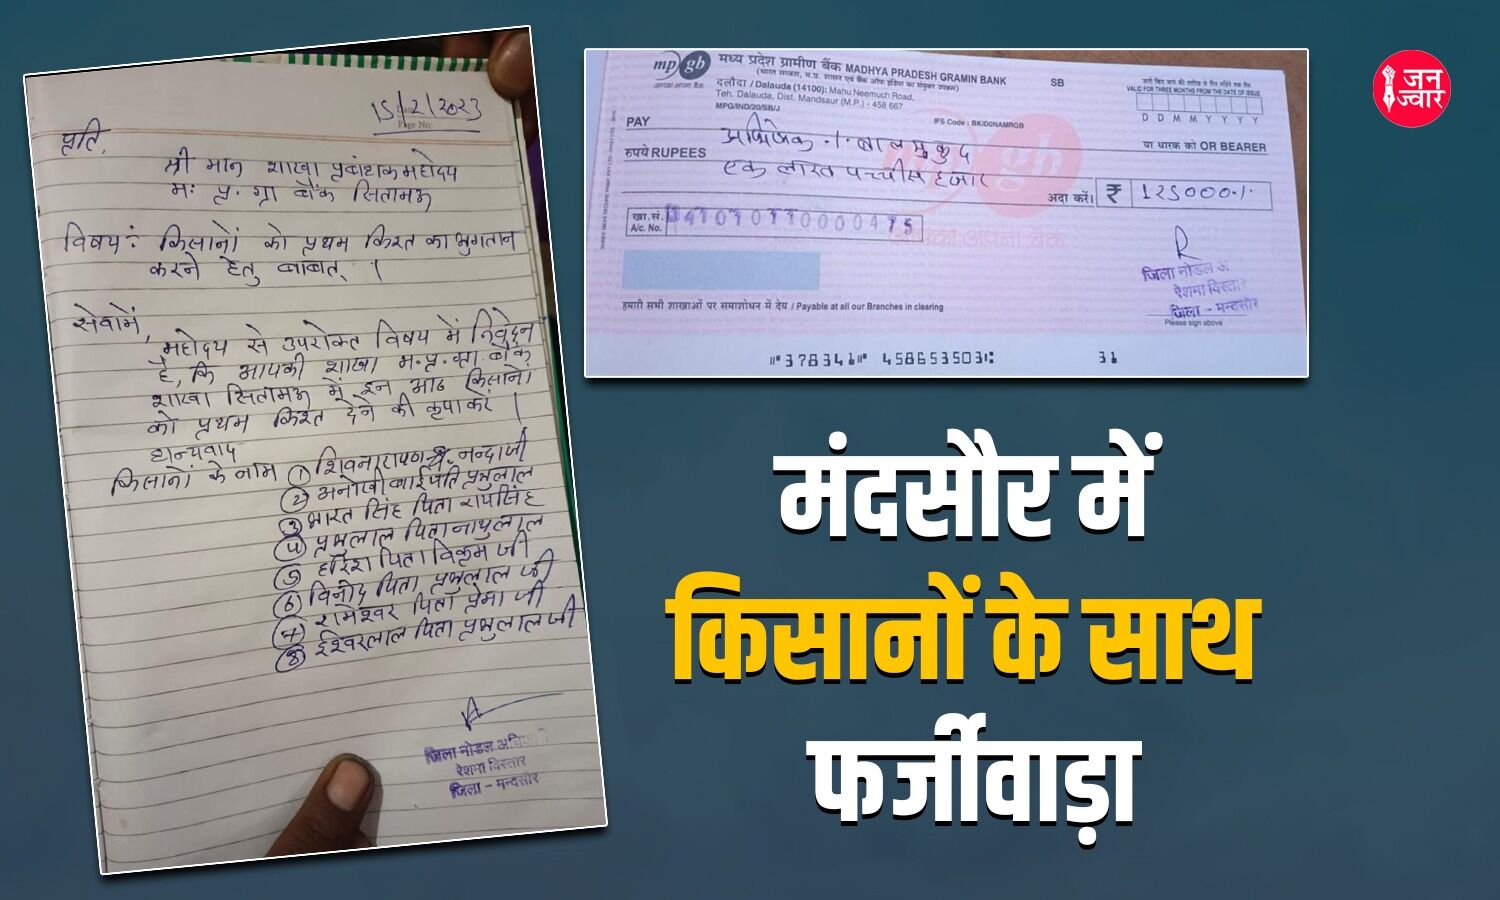 15/2/2023
Page No
प्रति,
श्री मान शाखा प्रबंधक महोदय
म. प्र. ग्रा बैंक सितामऊ
विषय: किसानों को प्रथम किश्त का भुगतान
करने हेतु बाबत् ।
सेवामें,
महोदय से उपरोक्त विषय में निवेदन
है, कि आपकी शाखा म.प्र.ग्रा. बैंक
शाखा सितामऊ में इन आठ किसानों
को प्रथम किश्त देने की कृपा करें ।
धन्यवाद
किसानों के नाम ① शिवनारायण नन्दाजी
② अनोखी बाई पति प्रभुलाल
③ भारत सिंह पिता रायसिंह
④ प्रभुलाल पिता नाथुलाल
⑤ हरिश पिता विक्रम जी
⑥ विनोद पिता प्रभुलाल जी
⑦ रामेश्वर पिता प्रेमा जी
⑧ ईश्वरलाल पिता प्रभुलाल जी
जिला नोडल
रेशमा विस्तार
जिला - मन्दसौर
mp gb
मध्य प्रदेश ग्रामीण बैंक MADHYA PRADESH GRAMIN BANK
SB
दलौदा / Dalauda (14100): Mahu Neemuch Road,
Teh. Dalauda, Dist. Mandsaur (M.P.) - 458 667
MPG/IND/20/SB/J
IFS Code : BKID0NAMRGB
VALID FOR THREE MONTHS FROM THE DATE OF ISSUE
D D M M Y Y Y Y
PAY
अभिषेक
या धारक को OR BEARER
रुपये RUPEES
एक लाख पच्चीस हजार
अदा करें। ₹ 125000/-
खा.सं.
A/c. No.
जिला नोडल अ
रेशमा विस्तार
जिला - मन्दसौर
Please sign above
हमारी सभी शाखाओं पर समाशोधन में देय / Payable at all our Branches in clearing
⑈378341⑈ 458653503⑆ 31
जन
ज्वार
मंदसौर में
किसानों के साथ
फर्जीवाड़ा